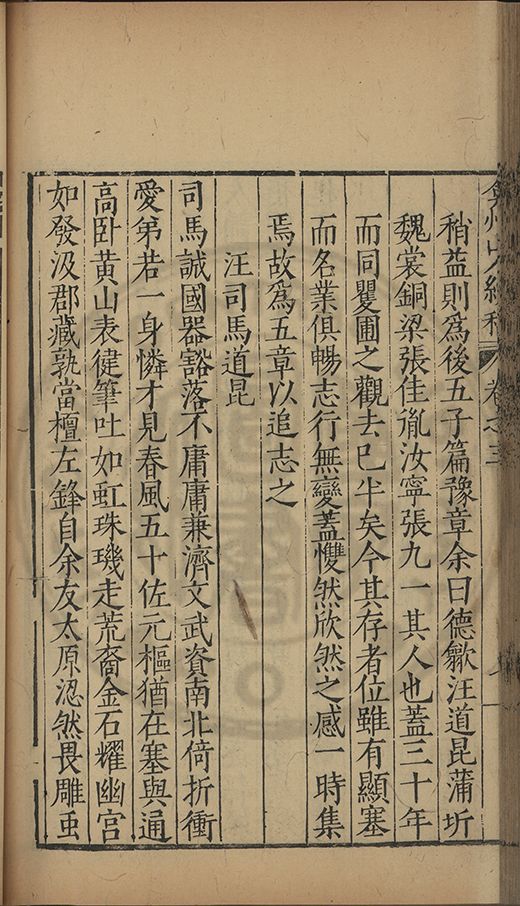 弇州山人續稿 卷之三
稍益則爲後五子篇豫章余曰德歙汪道昆蒲圻
魏裳銅梁張佳胤汝寧張九一其人也蓋三十年
而同矍圃之觀去已半矣今其存者位雖有顯塞
而名業俱暢志行無變蓋慨然欣然之感一時集
焉故爲五章以追志之
汪司馬道昆
司馬誠國器豁落不庸庸兼濟文武資南北倚折衝
愛弟若一身憐才見春風五十佐元樞猶在塞與通
高卧黃山表健筆吐如虹珠璣走荒裔金石耀幽宮
如發汲郡藏孰當檀左鋒自余友太原涊然畏雕䖝